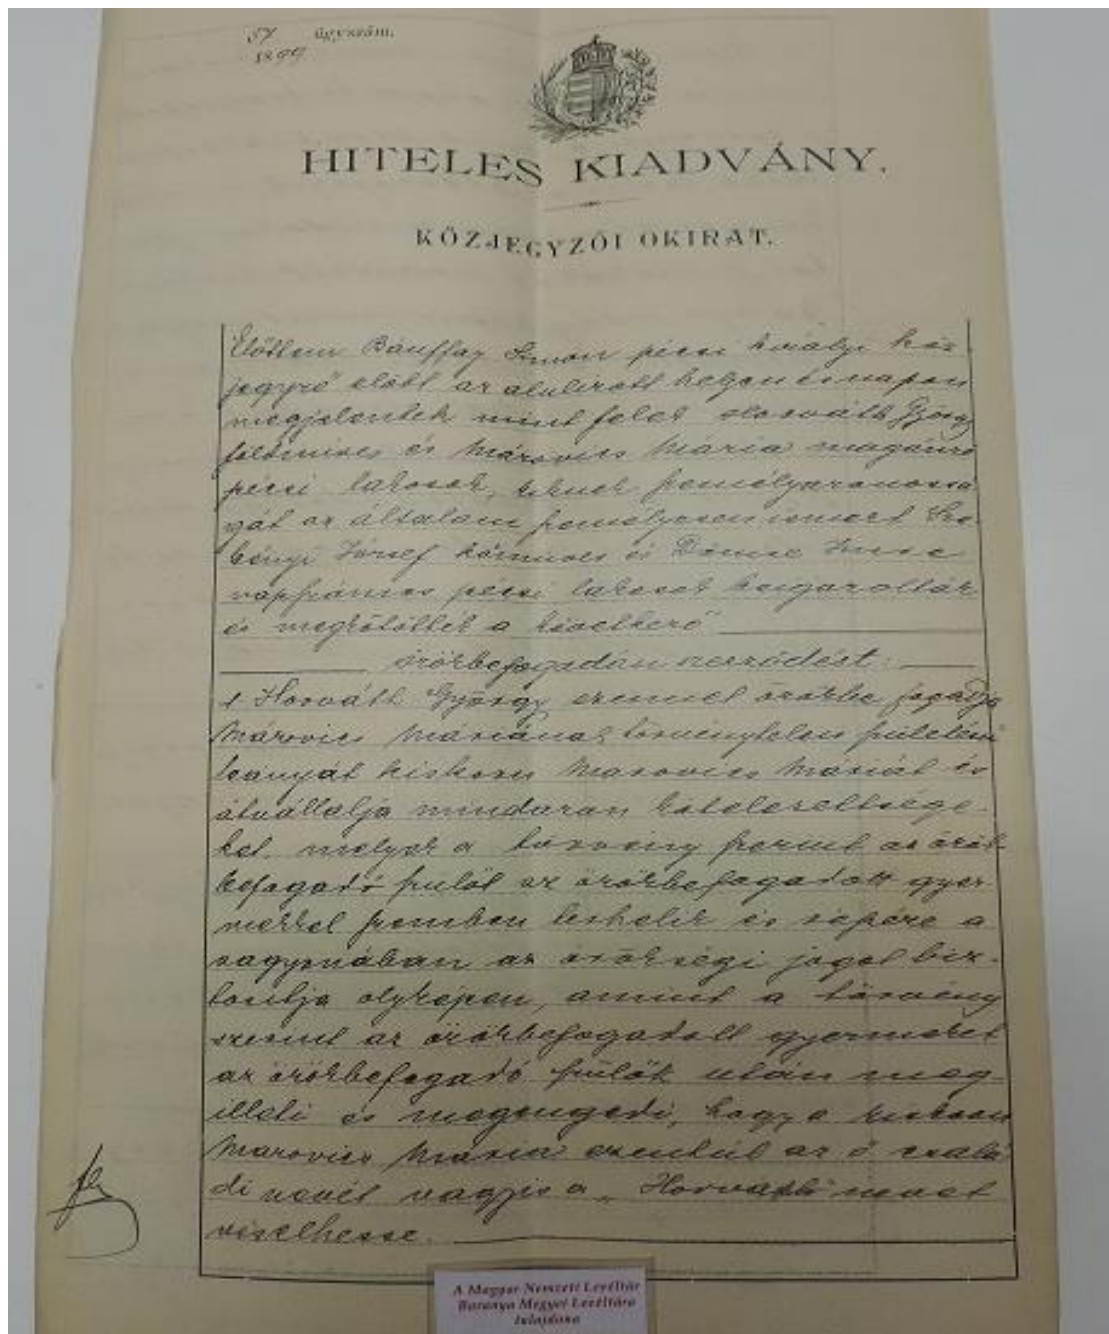 57 ügyszám.
1899
HITELES KIADVÁNY.
KÖZJEGYZŐI OKIRAT.
Előttem Bánffay Simon pécsi királyi köz-
jegyző előtt az alulirott helyen és napon
megjelentek mint felek Horváth György
földmives és Márovics Mária magánzó
pécsi lakosok, kiknek személyazonossá
gát az általam személyesen ismert
József kőmives és Imre
pécsi lakosok igazolták
és megkötötték a következő
örökbefogadási szerződést:
1 Horváth György ezennel örökbe fogadja
Márovics Máriának törvénytelen születésü
leányát kiskoru Marovics Máriát és
átvállalja mindazon kötelezettsége-
ket, melyek a törvény szerint az örök
befogadó szülőt az örökbefogadott gyer
mekkel szemben terhelik és részére a
vagyonában az örökségi jogot biz-
tositja olyképen, amint a törvény
szerint az örökbefogadott gyermeket
az örökbefogadó szülők után meg-
illeti és megengedi, hogy a kiskoru
Marovics Mária ezentúl az ő csalá
di nevét vagyis a „Horváth" nevet
viselhesse.
A Magyar Nemzeti Levéltár
Baranya Megyei Levéltára
tulajdona